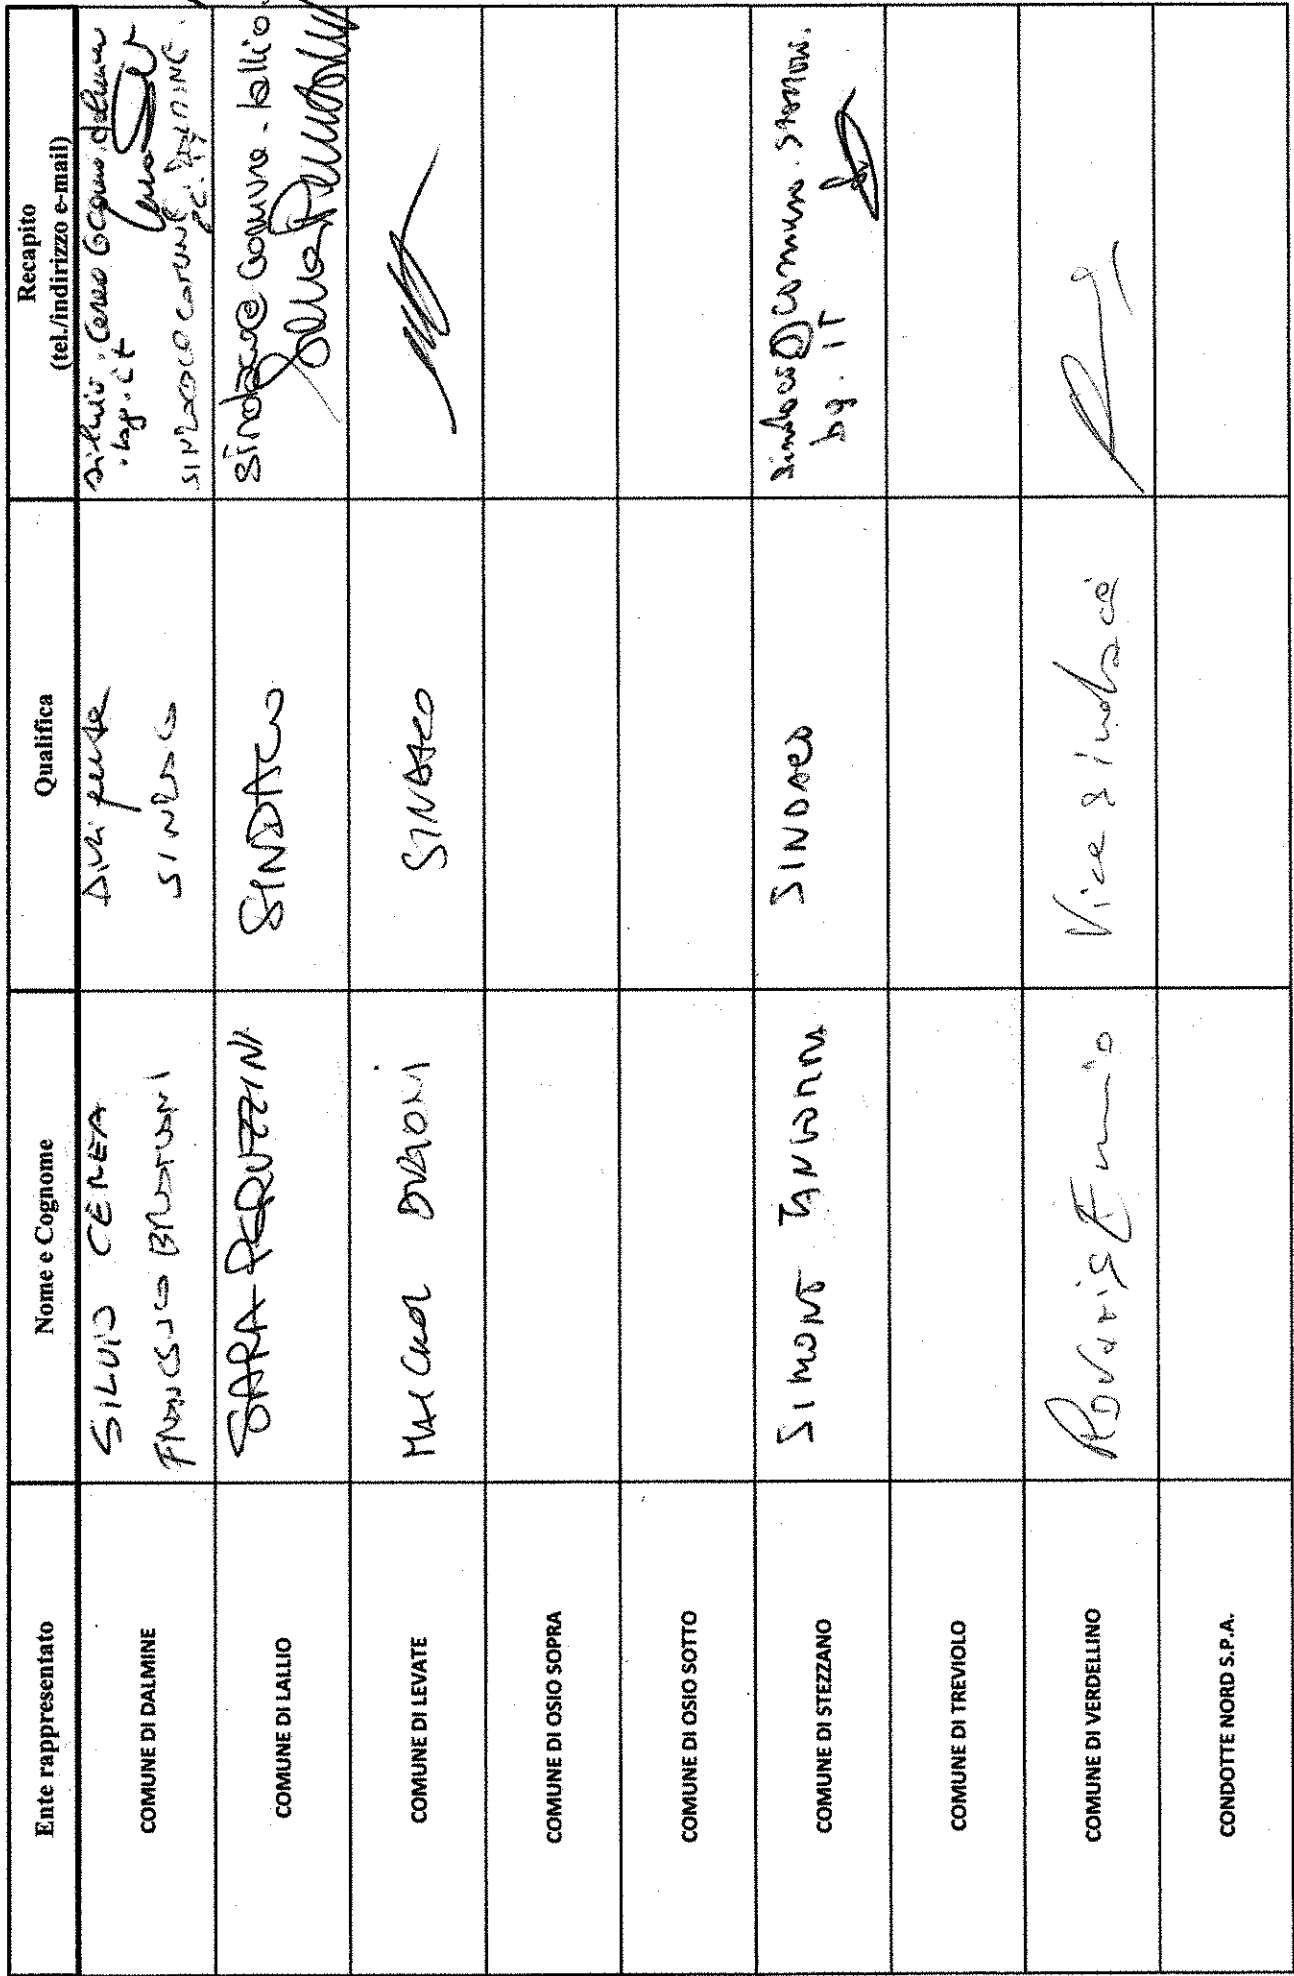 Ente rappresentato
Nome e Cognome
Qualifica
Recapito
(tel./indirizzo e-mail)
COMUNE DI DALMINE
SILVIO CEREA
Dirigente
silvio.cerea@comune.dalmine
.bg.it
SINDACO
COMUNE DI LALLIO
SARA PERUZZINI
SINDACO
sindaco@comune.lallio.
COMUNE DI LEVATE
SINDACO
COMUNE DI OSIO SOPRA
COMUNE DI OSIO SOTTO
COMUNE DI STEZZANO
SIMONE TANGORRA
SINDACO
sindaco@comune.stezzano.
bg.IT
COMUNE DI TREVIOLO
COMUNE DI VERDELLINO
Rovaris Ennio
Vice sindaco
CONDOTTE NORD S.P.A.